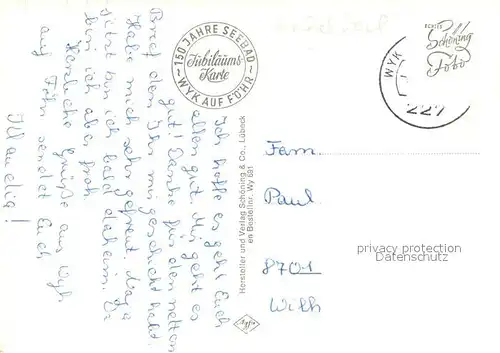 Ich hoffe es geht Euch
allen gut. Mir geht es
gut! Danke für den netten
Brief den Ihr mir geschickt habt.
Habe mich sehr gefreut. Naja
jetzt bin ich bald daheim. Da
bin ich aber froh.
Herzliche Grüße aus Wyk
auf Föhr sendet Euch
~ 150 JAHRE SEEBAD ~
Jubiläums
Karte
WYK AUF FÖHR
Hersteller und Verlag Schöning & Co., Lübeck
Bestellnr. Wy 691
Agfa
ECHTES
Schöning
Foto
WYK
227
Fam.
Paul
privacy protection
Datenschutz
8701